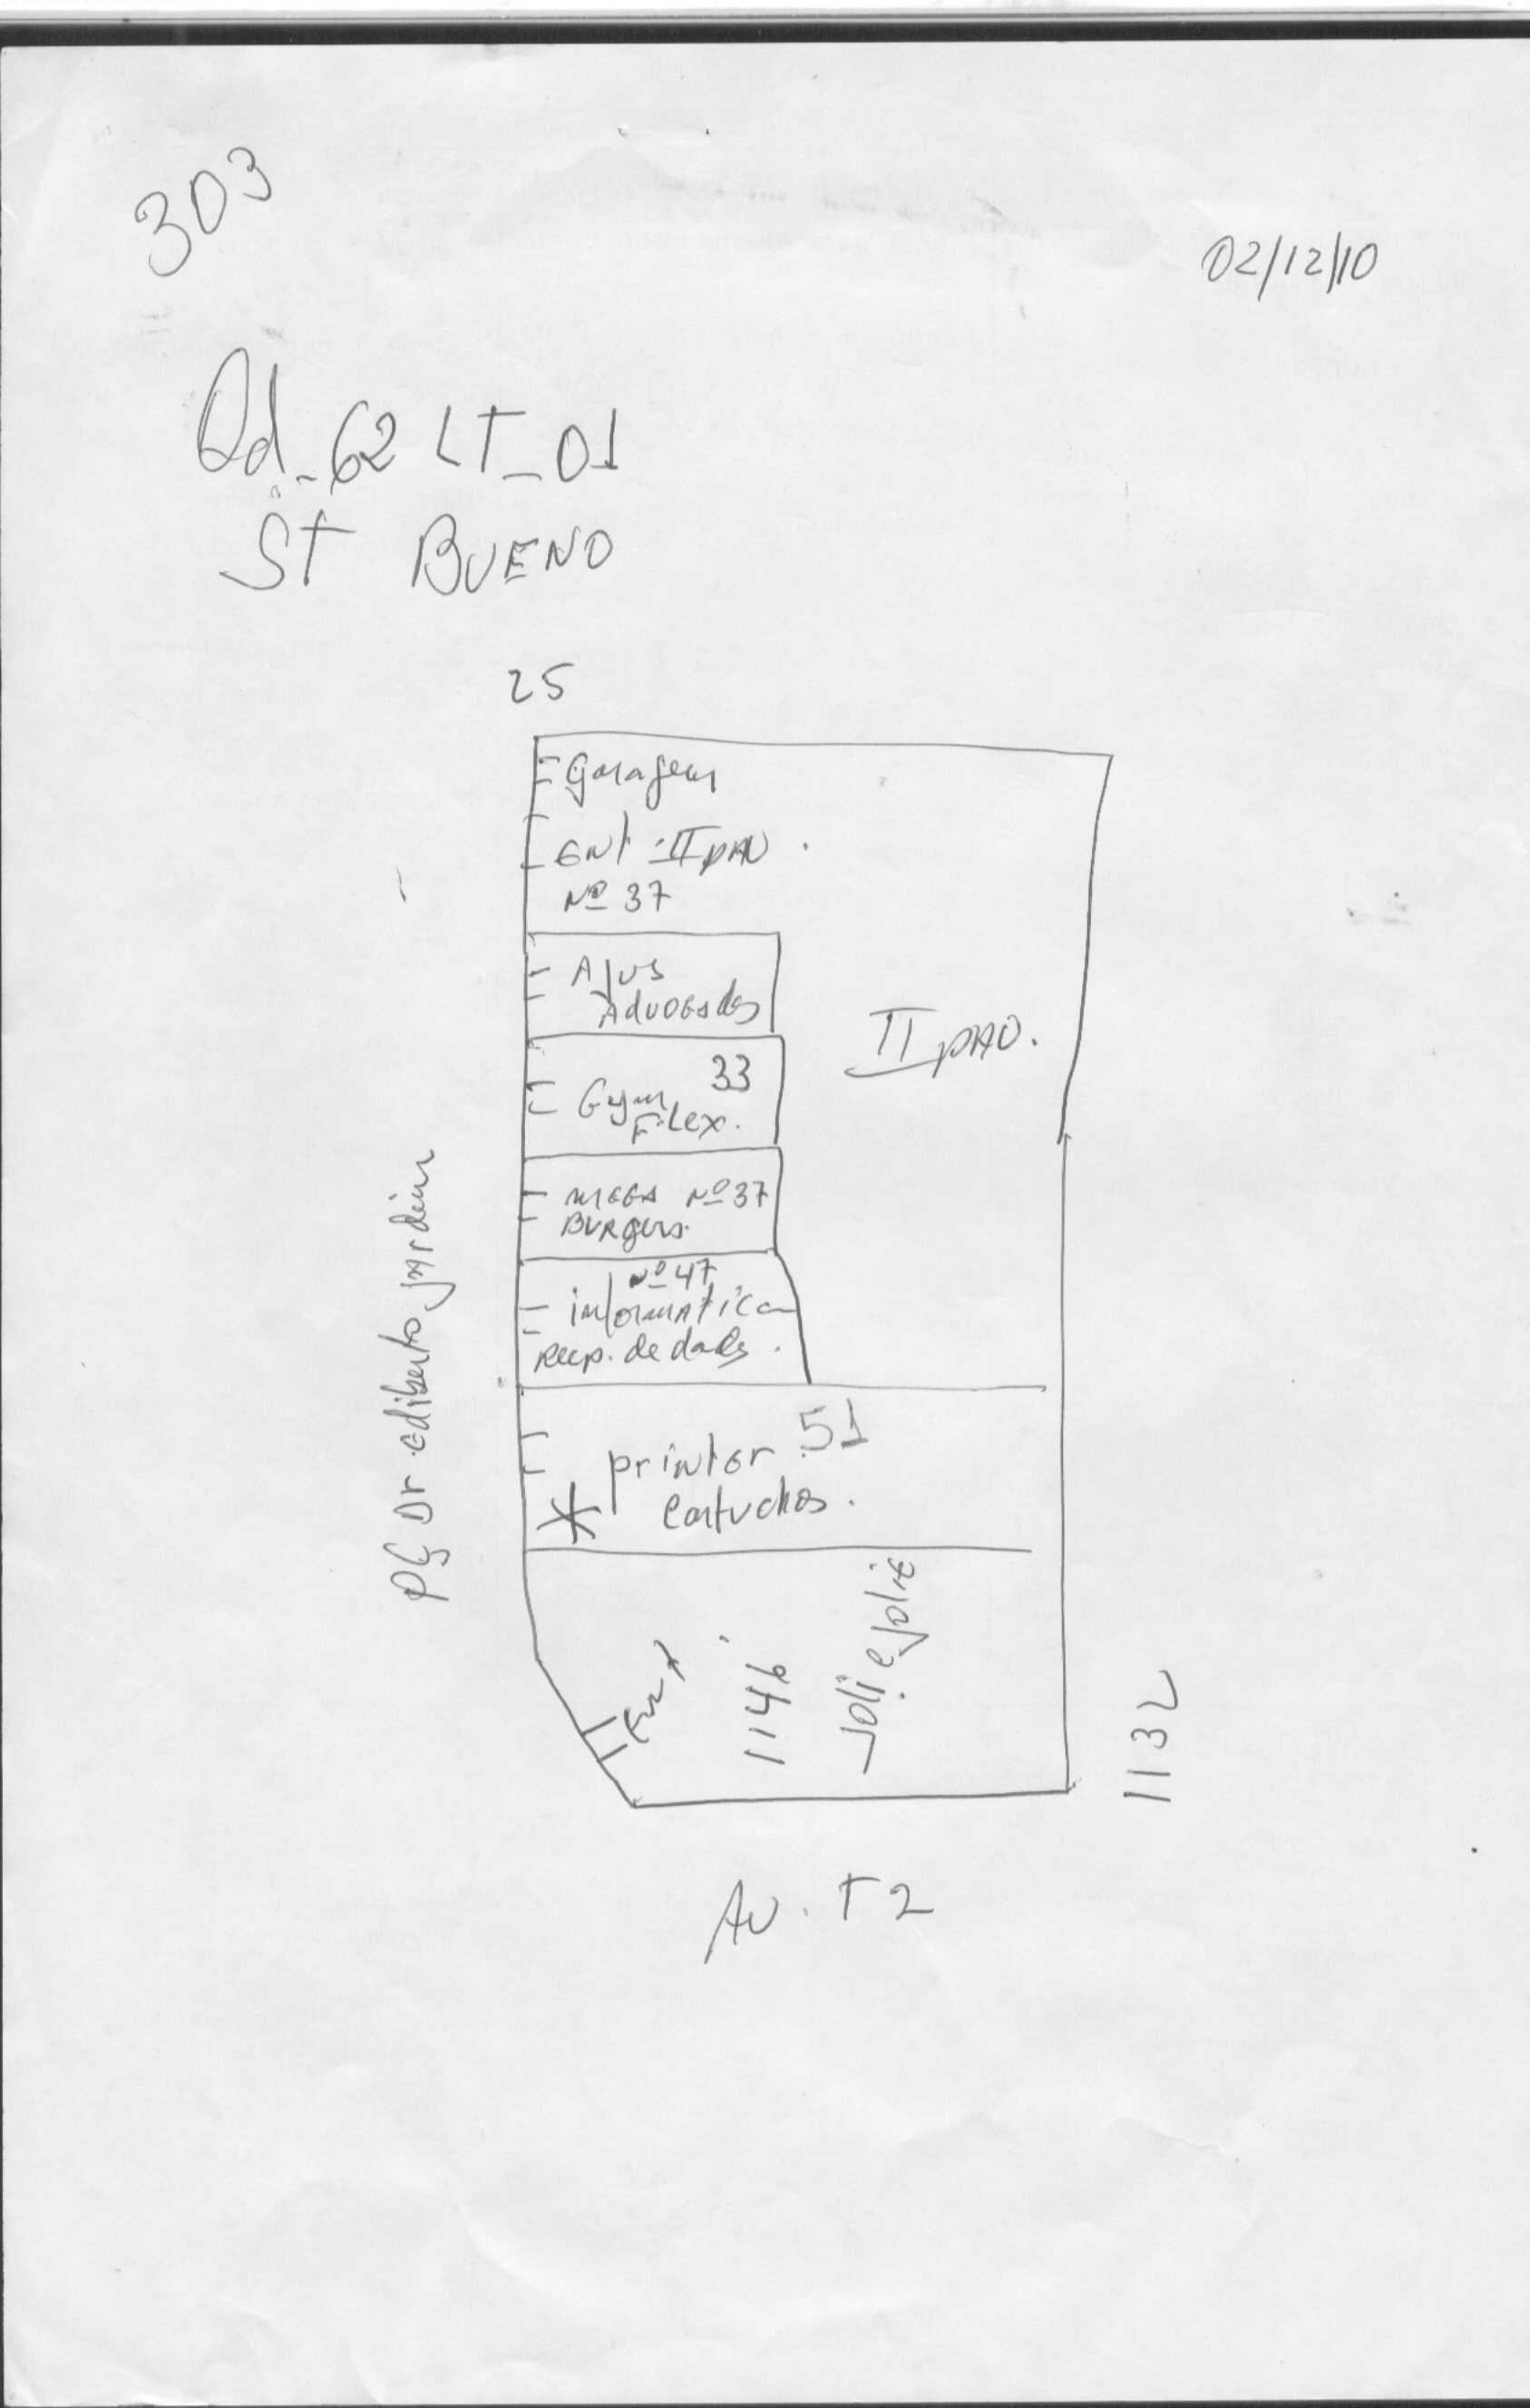 303
02/12/10
Qd_62 LT_01
ST BUENO
25
Garagem
ENT II PAV.
Nº 37
AJUS
ADVOGADOS
II PAV.
33
Gym
Flex.
MEGA Nº 37
BURgers
Nº 47
informatica
Recp. de dados.
PÇ Dr Ediberto jardim
printer 51
* Cartuchos.
Ent
1146
Joli e Jolie
1132
AV. T2